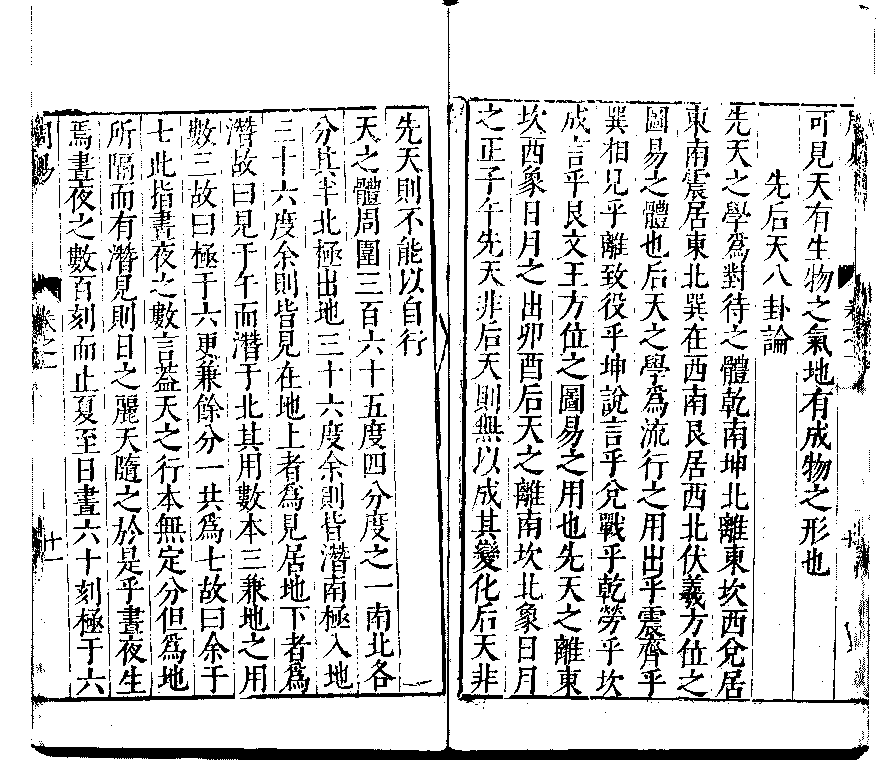 可見天有生物之氣地有成物之形也
先后天八卦論
先天之學爲對待之體乾南坤北離東坎西兌居
東南震居東北巽在西南艮居西北伏羲方位之
圖易之體也后天之學爲流行之用出乎震齊乎
巽相見乎離致役乎坤說言乎兌戰乎乾勞乎坎
成言乎艮文王方位之圖易之用也先天之離東
坎西象日月之出卯酉后天之離南坎北象日月
之正子午先天非后天則無以成其變化后天非
先天則不能以自行
天之體周圍三百六十五度四分度之一南北各
分其半北極出地三十六度余則皆潛南極入地
三十六度余則皆見在地上者爲見居地下者爲
潛故曰見于午而潛于北其用數本三兼地之用
數三故曰極于六更兼餘分一共爲七故曰余于
七此指晝夜之數言葢天之行本無定分但爲地
所隔而有潛見則日之麗天隨之於是乎晝夜生
焉晝夜之數百刻而止夏至日晝六十刻極于六
周易
卷之一
十一